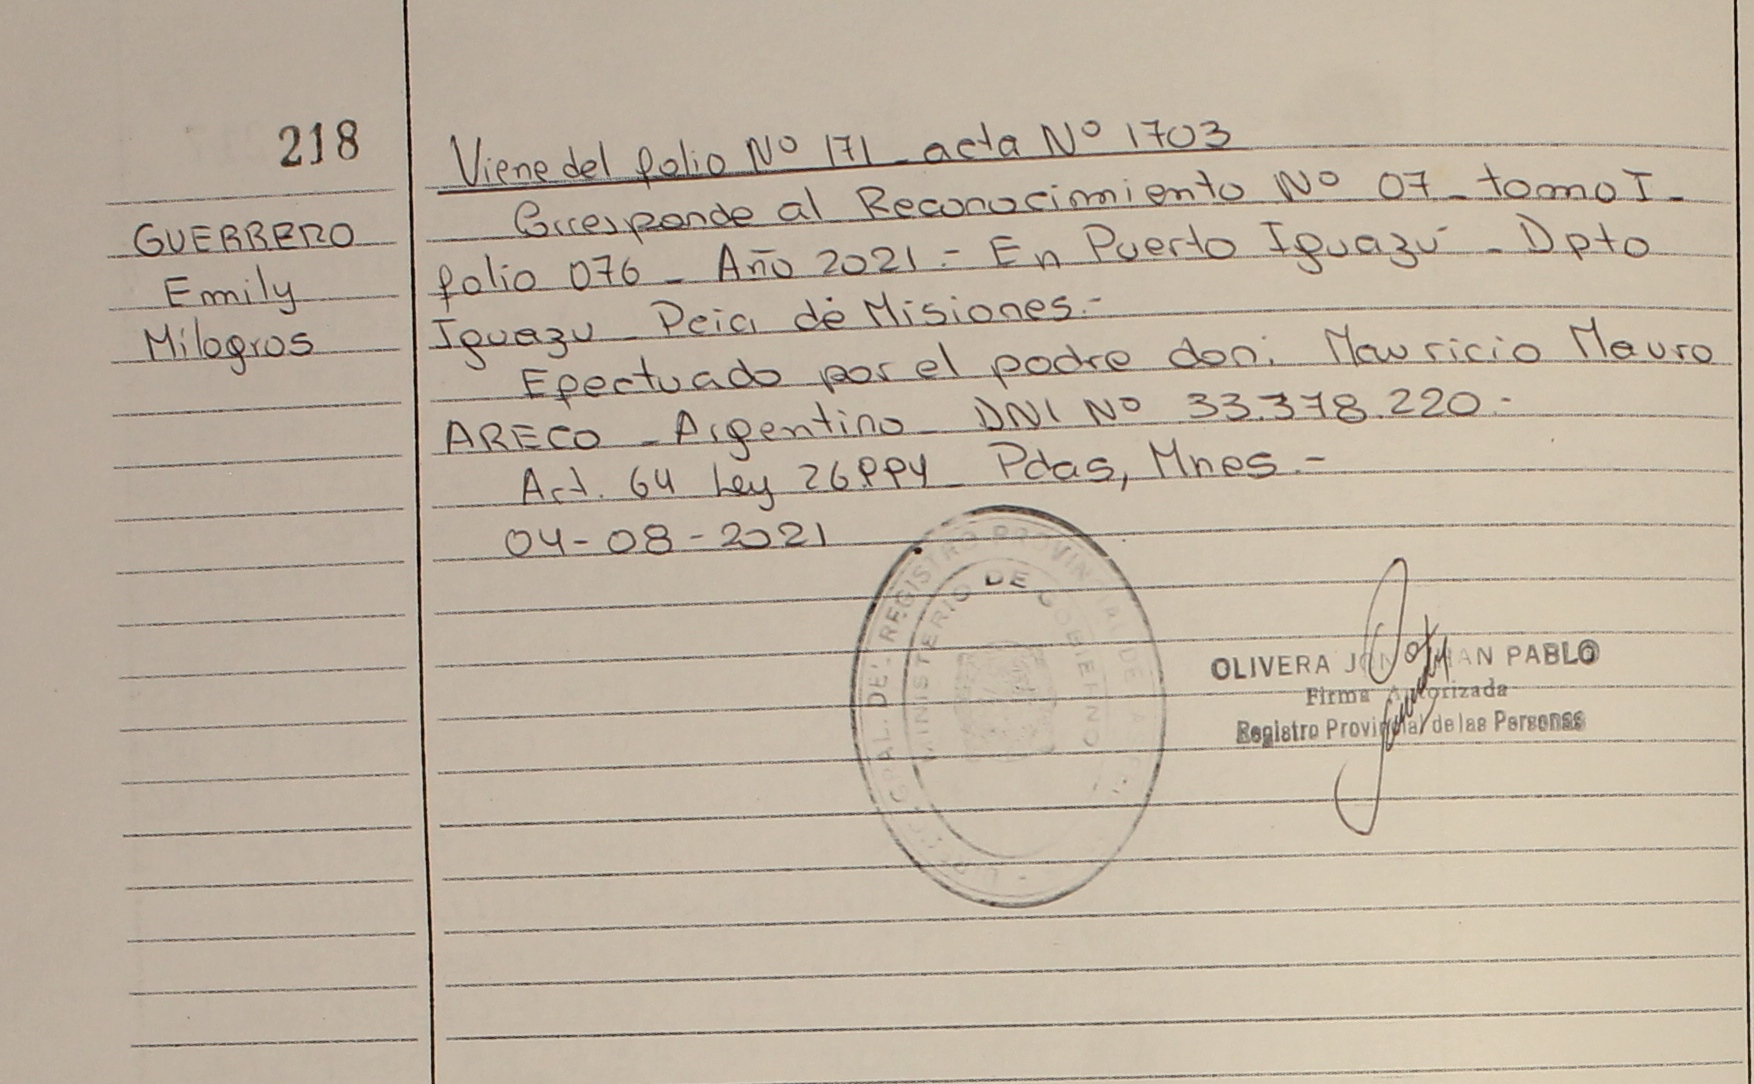 218
GUERRERO
Emily
Milagros
Viene del folio Nº 171 - acta Nº 1703
Corresponde al Reconocimiento Nº 07 - tomo I -
folio 076 - Año 2021 .- En Puerto Iguazú - Dpto
Iguazu Pcia de Misiones.-
Efectuado por el padre don: Mauricio Mauro
ARECO - Argentino - DNI Nº 33.378.220.-
Art. 64 Ley 26994 - Pdas, Mnes.-
04-08-2021
GRAL. DEL REGISTRO PROVINCIAL DE LAS
MINISTERIO DE GOBIERNO
OLIVERA JONATHAN PABLO
Firma Autorizada
Registro Provincial de las Personas